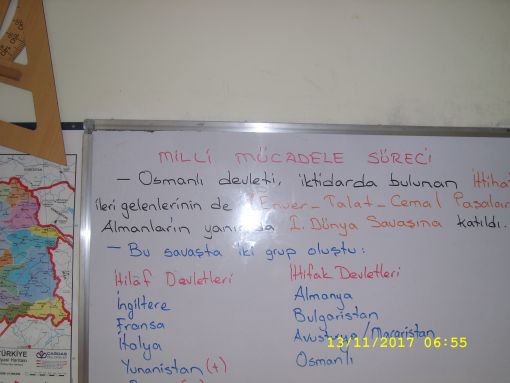 MİLLİ MÜCADELE SÜRECİ
– Osmanlı devleti, iktidarda bulunan İttiha
ileri gelenlerinin de Enver-Talat-Cemal Paşalar
Almanların yanında I. Dünya Savaşına katıldı.
– Bu savaşta iki grup oluştu:
İtilaf Devletleri
İngiltere
Fransa
İtalya
Yunanistan (+)
İttifak Devletleri
Almanya
Bulgaristan
Avusturya/Macaristan
Osmanlı
13/11/2017 06:55
TÜRKİYE